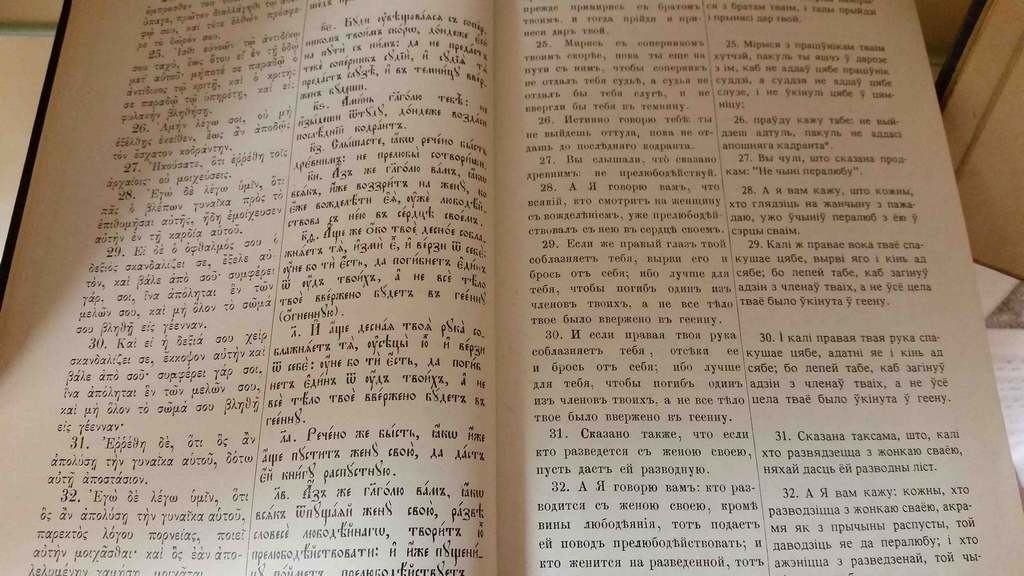 σου καὶ τότε ἐλθὼν πρόσφε-
ρε τὸ δῶρόν σου.
25. Ἴσθι εὐνοῶν τῷ ἀντιδίκῳ
σου ταχύ, ἕως ὅτου εἶ ἐν τῇ ὁδῷ
μετ᾽ αὐτοῦ· μήποτέ σε παραδῷ ὁ
ἀντίδικος τῷ κριτῇ, καὶ ὁ κριτής
σε παραδῷ τῷ ὑπηρέτῃ, καὶ εἰς
φυλακὴν βληθήσῃ.
26. Ἀμὴν λέγω σοι, οὐ μὴ
ἐξέλθῃς ἐκεῖθεν, ἕως ἂν ἀποδῷς
τὸν ἔσχατον κοδράντην.
27. Ἠκούσατε, ὅτι ἐῤῥέθη τοῖς
ἀρχαίοις· οὐ μοιχεύσεις.
28. Ἐγὼ δὲ λέγω ὑμῖν, ὅτι
πᾶς ὁ βλέπων γυναῖκα πρὸς τὸ
ἐπιθυμῆσαι αὐτῆς, ἤδη ἐμοίχευσεν
αὐτὴν ἐν τῇ καρδίᾳ αὐτοῦ.
29. Εἰ δὲ ὁ ὀφθαλμός σου ὁ
δεξιὸς σκανδαλίζει σε, ἔξελε αὐ-
τὸν, καὶ βάλε ἀπὸ σοῦ· συμφέρει
γάρ σοι, ἵνα ἀπόληται ἓν τῶν
μελῶν σου, καὶ μὴ ὅλον τὸ σῶμά
σου βληθῇ εἰς γέενναν.
30. Καὶ εἰ ἡ δεξιά σου χεὶρ
σκανδαλίζει σε, ἔκκοψον αὐτὴν καὶ
βάλε ἀπὸ σοῦ· συμφέρει γάρ σοι,
ἵνα ἀπόληται ἓν τῶν μελῶν σου,
καὶ μὴ ὅλον τὸ σῶμά σου βληθῇ
εἰς γέενναν·
31. Ἐῤῥέθη δὲ, ὅτι ὃς ἂν
ἀπολύσῃ τὴν γυναῖκα αὑτοῦ, δότω
αὐτῇ ἀποστάσιον.
32. Ἐγὼ δὲ λέγω ὑμῖν, ὅτι
ὃς ἂν ἀπολύσῃ τὴν γυναῖκα αὑτοῦ,
παρεκτὸς λόγου πορνείας, ποιεῖ
αὐτὴν μοιχᾶσθαι· καὶ ὃς ἐὰν ἀπο-
λελυμένην γαμήσῃ, μοιχᾶται.
к҃е. Буди ᲂувѣщаваѧсѧ съ сопер-
никомъ твоимъ скорѡ, дондеже єси
на пути съ нимъ: да не предастъ
тебе соперникъ судїи, и судїѧ тѧ
предастъ слузѣ, и въ темницу ввер-
женъ будеши.
к҃ѕ. Аминь гл҃голю тебѣ: не
изыдеши ѿтуду, дондеже воздаси
послѣднїй кодрантъ.
к҃з. Слышасте, ꙗкѡ речено бысть
древнимъ: не прелюбы сотвориши.
к҃и. Азъ же гл҃голю вамъ, ꙗкѡ
всѧкъ, иже воззритъ на жену, ко
єже вожделѣти єѧ, ᲂуже любодѣй-
ствова съ нею въ сердцѣ своемъ.
к҃ѳ. Аще же ѻко твое десное собла-
жнѧетъ тѧ, изми є, и верзи ѿ себе:
ᲂуне бо ти єсть, да погибнетъ єдинъ
ѿ ᲂудъ твоихъ, а не все тѣло
твое ввержено будетъ въ геенну
(ѻгненную).
л҃. И аще деснаѧ твоѧ рука со-
блажнѧетъ тѧ, ᲂусѣцы ю и верзи
ѿ себе: ᲂуне бо ти єсть, да погиб-
нетъ єдинъ ѿ ᲂудъ твоихъ, а не
все тѣло твое ввержено будетъ въ
геенну.
л҃а. Речено же бысть, ꙗкѡ иже
аще пуститъ жену свою, да дастъ
єй книгу распустную.
л҃в. Азъ же гл҃голю вамъ, ꙗкѡ
всѧкъ ѿпущаѧй жену свою, развѣ
словесе любодѣйнагѡ, творитъ ю
прелюбодѣйствовати: и иже пущени-
цу пойметъ, прелюбодѣйствуетъ.
прежде примирись съ братомъ
твоимъ, и тогда прійди и при-
неси даръ твой.
25. Мирись съ соперникомъ
твоимъ скорѣе, пока ты еще на
пути съ нимъ, чтобы соперникъ
не отдалъ тебя судьѣ, а судья не
отдалъ бы тебя слугѣ, и не
ввергли бы тебя въ темницу.
26. Истинно говорю тебѣ: ты
не выйдешь оттуда, пока не от-
дашь до послѣдняго кодранта.
27. Вы слышали, что̀ сказано
древнимъ: не прелюбодѣйствуй.
28. А Я говорю вамъ, что
всякій, кто смотритъ на женщину
съ вожделѣніемъ, уже прелюбодѣй-
ствовалъ съ нею въ сердцѣ своемъ.
29. Если же правый глазъ твой
соблазняетъ тебя, вырви его и
брось отъ себя; ибо лучше для
тебя, чтобы погибъ одинъ изъ
членовъ твоихъ, а не все тѣло
твое было ввержено въ геенну.
30. И если правая твоя рука
соблазняетъ тебя, отсѣки ее
и брось отъ себя; ибо лучше
для тебя, чтобы погибъ одинъ
изъ членовъ твоихъ, а не все тѣло
твое было ввержено въ геенну.
31. Сказано также, что если
кто разведется съ женою своею,
пусть дастъ ей разводную.
32. А Я говорю вамъ: кто раз-
водится съ женою своею, кромѣ
вины любодѣянія, тотъ подаетъ
ей поводъ прелюбодѣйствовать; и
кто женится на разведенной, тотъ
ся з братам тваім, і тады прыйдзі
і прынясі дар твой.
25. Мірыся з працўнікам тваім
хутчэй, пакуль ты яшчэ ў дарозе
з ім, каб не аддаў цябе працўнік
суддзі, а суддзя не аддаў цябе
слузе, і не ўкінулі цябе ў цям-
ніцу;
26. праўду кажу табе: не вый-
дзеш адтуль, пакуль не аддасі
апошняга кадранта*.
27. Вы чулі, што сказана прод-
кам: "Не чыні пералюбу".
28. А я вам кажу, што кожны,
хто глядзіць на жанчыну з пажа-
даю, ужо ўчыніў пералюб з ёю ў
сэрцы сваім.
29. Калі ж правае вока тваё спа-
кушае цябе, вырві яго і кінь ад
сябе; бо лепей табе, каб загінуў
адзін з членаў тваіх, а не ўсё цела
тваё было ўкінута ў геену.
30. І калі правая твая рука спа-
кушае цябе, адатні яе і кінь ад
сябе; бо лепей табе, каб загінуў
адзін з членаў тваіх, а не ўсё
цела тваё было ўкінута ў геену.
31. Сказана таксама, што, калі
хто развядзецца з жонкаю сваёю,
няхай дасць ёй разводны ліст.
32. А Я вам кажу: кожны, хто
разводзіцца з жонкаю сваёю, акра-
мя як з прычыны распусты, той
даводзіць яе да пералюбу; і хто
ажэніцца з разведзенай, той чы-